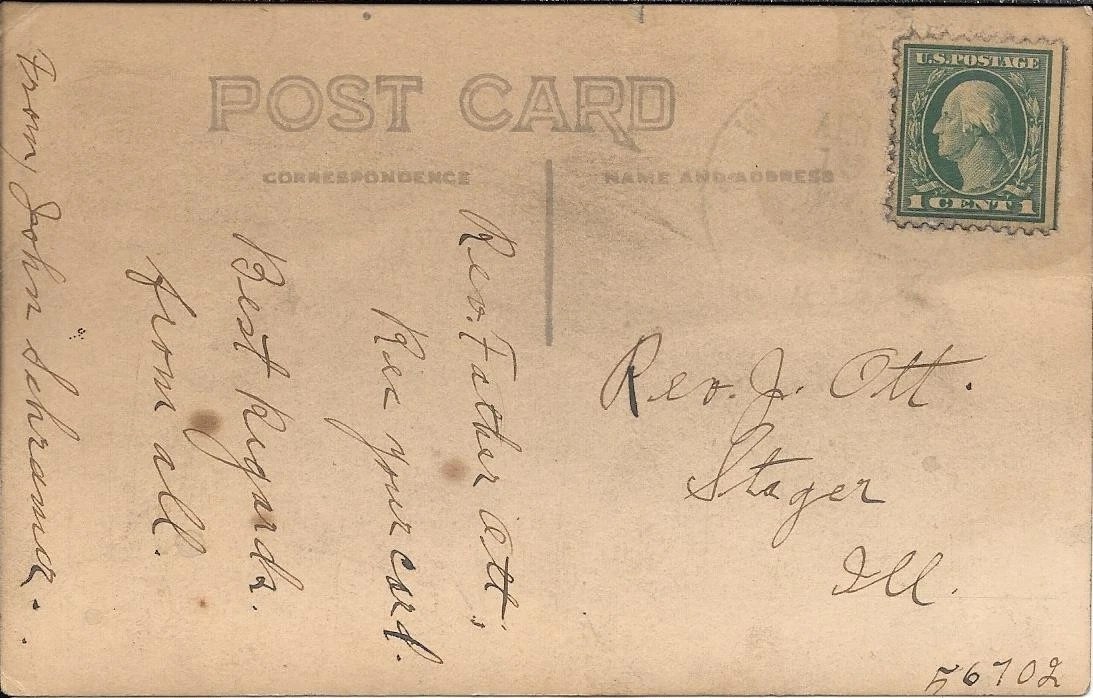 POST CARD
CORRESPONDENCE
NAME AND ADDRESS
U.S. POSTAGE
1 CENT 1
Rev. Father Ott;
Rec your card.
Best Regards.
from all.
From, John Schrama.
Rev. J. Ott.
Stager
Ill.
56702